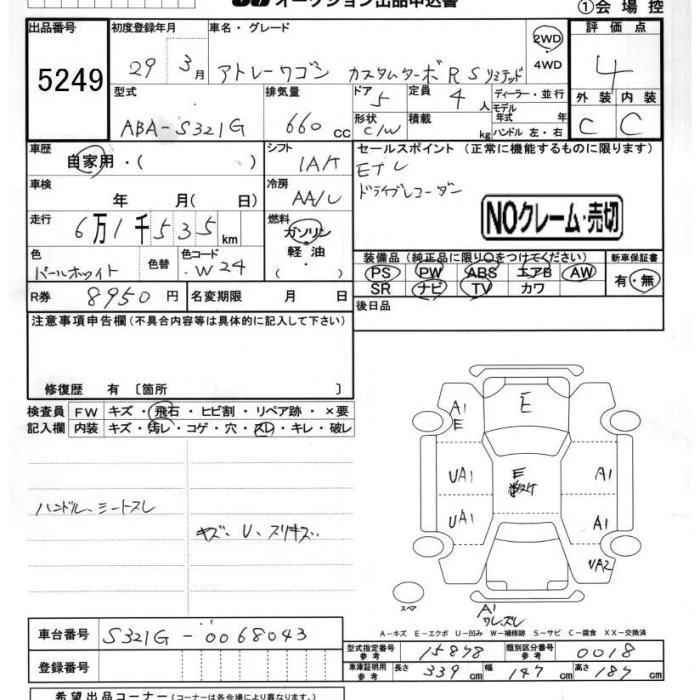 オークション出品申込書
①会場控
出品番号 5249
初度登録年月 29年 3月
車名・グレード アトレーワゴン カスタムターボRSリミテッド
2WD
4WD
評価点 4
外装 C 内装 C
型式 ABA-S321G
排気量 660cc
ドア 5
形状 C/W
定員 4人
積載 kg
ディーラー・並行
モデル年式 年
ハンドル 左・右
車歴 自家用・( )
シフト IA/T
車検 年 月( 日)
冷房 AA/C
走行 6万1千535km
燃料 ガソリン 軽油
色 パールホワイト
色替
色コード W24
R券 8950円
名変期限 月 日
セールスポイント (正常に機能するものに限ります)
ETC
ドライブレコーダー
NOクレーム・売切
装備品 (純正品に限り○をつけてください)
新車保証書
PS PW ABS エアB AW
SR ナビ TV カワ
有・無
後日品
注意事項申告欄 (不具合内容等は具体的に記入して下さい)
修復歴 有 〔箇所 〕
検査員記入欄
FW キズ・飛石・ヒビ割・リペア跡・×要
内装 キズ・汚レ・コゲ・穴・スレ・キレ・破レ
ハンドル、シートスレ
キズ、U、スリキズ
A1
E
E
UA1
E
A1
UA1
A1
UA2
スペア
A1
ワレ、スレ
A-キズ E-エクボ U-凹み W-補修跡 S-サビ C-腐食 XX-交換済
車台番号 S321G-0068043
登録番号
型式指定番号 参考 15878
類別区分番号 参考 0018
車庫証明用 参考 長さ 339cm 幅 147cm 高さ 187cm
希望出品コーナー